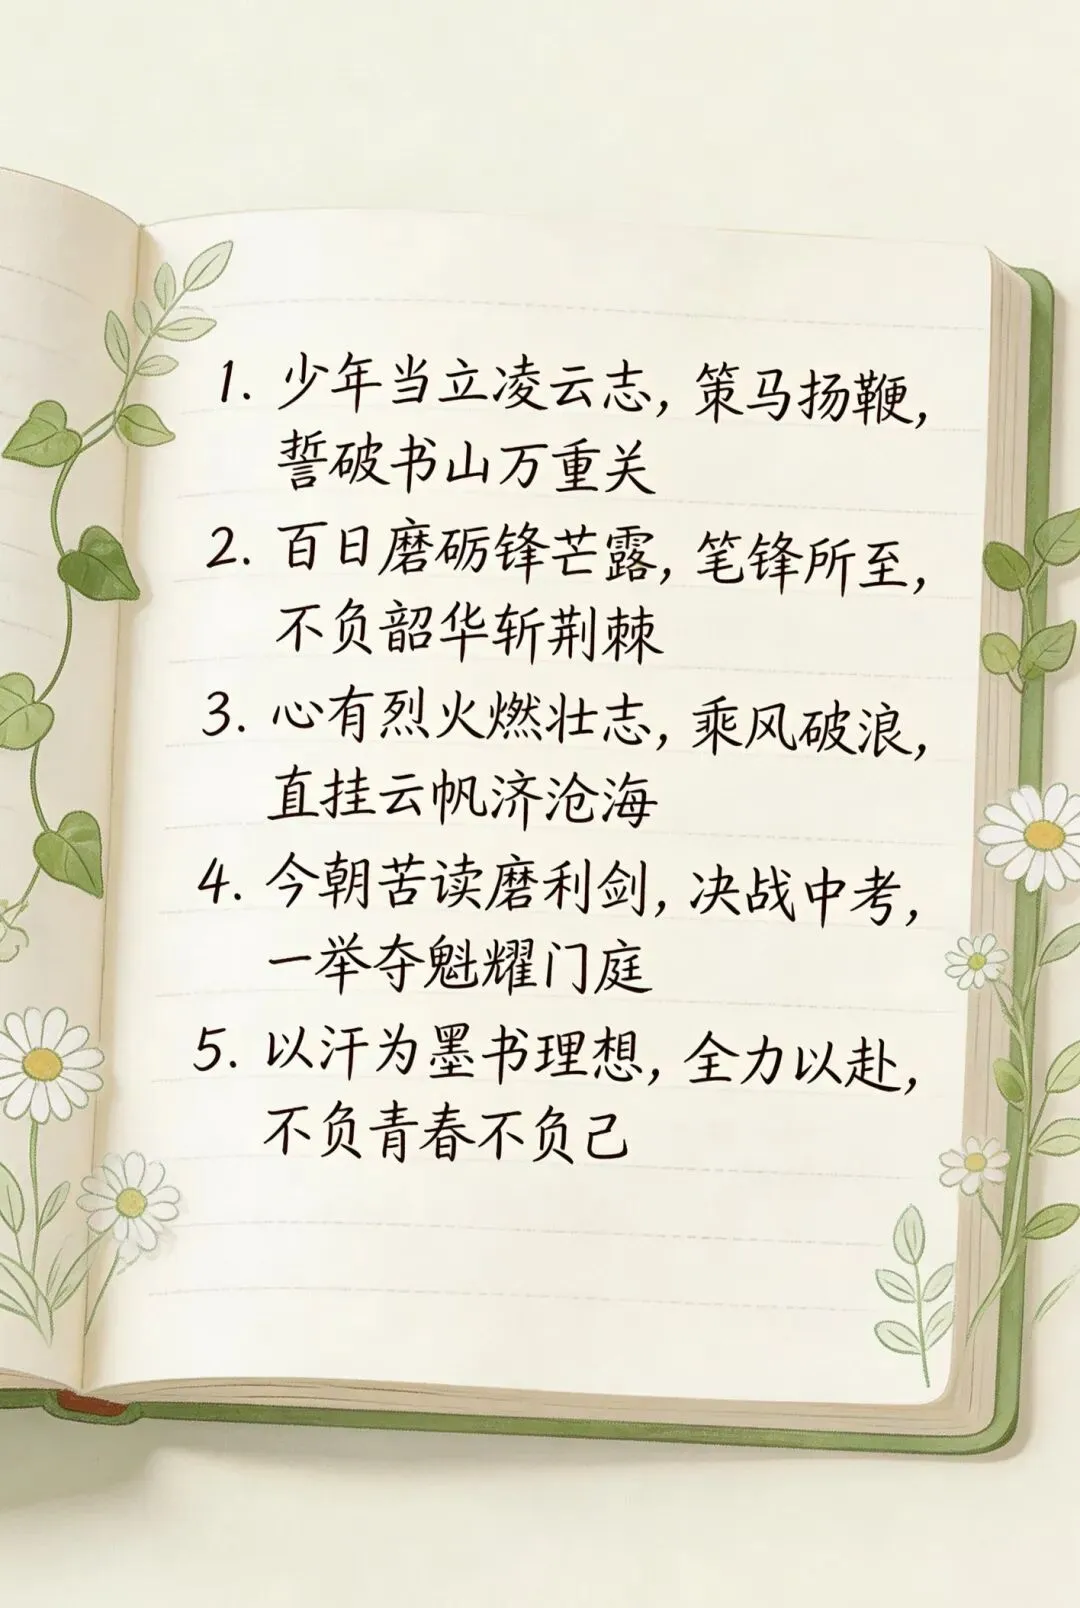 1. 少年当立凌云志, 策马扬鞭,
誓破书山万重关
2. 百日磨砺锋芒露, 笔锋所至,
不负韶华斩荆棘
3. 心有烈火燃壮志, 乘风破浪,
直挂云帆济沧海
4. 今朝苦读磨利剑, 决战中考,
一举夺魁耀门庭
5. 以汗为墨书理想, 全力以赴,
不负青春不负己